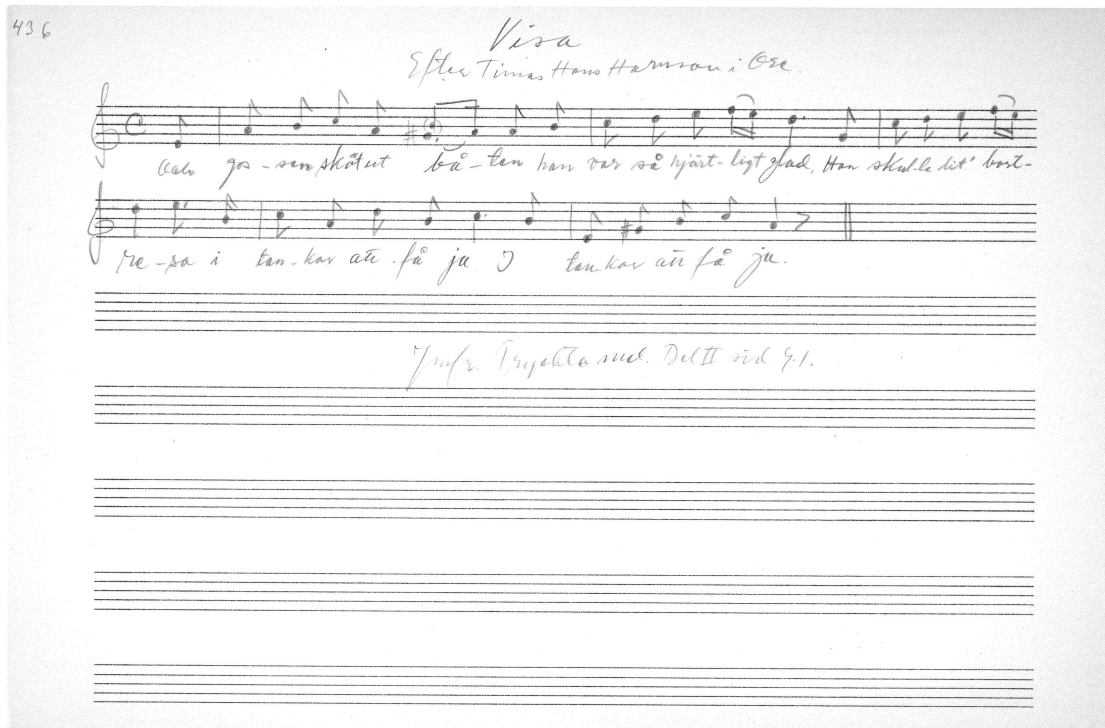 436
Visa
Efter Timas Hans Hansson i Ore.
Och gos-sen sköt ut bå-ten han var så hjärt-ligt glad, Han skul-le dit bort-
re-sa i tan-kar att få ja I tan-kar att få ja.
Jmfr. Tryckta mel. Del II sid. 91.